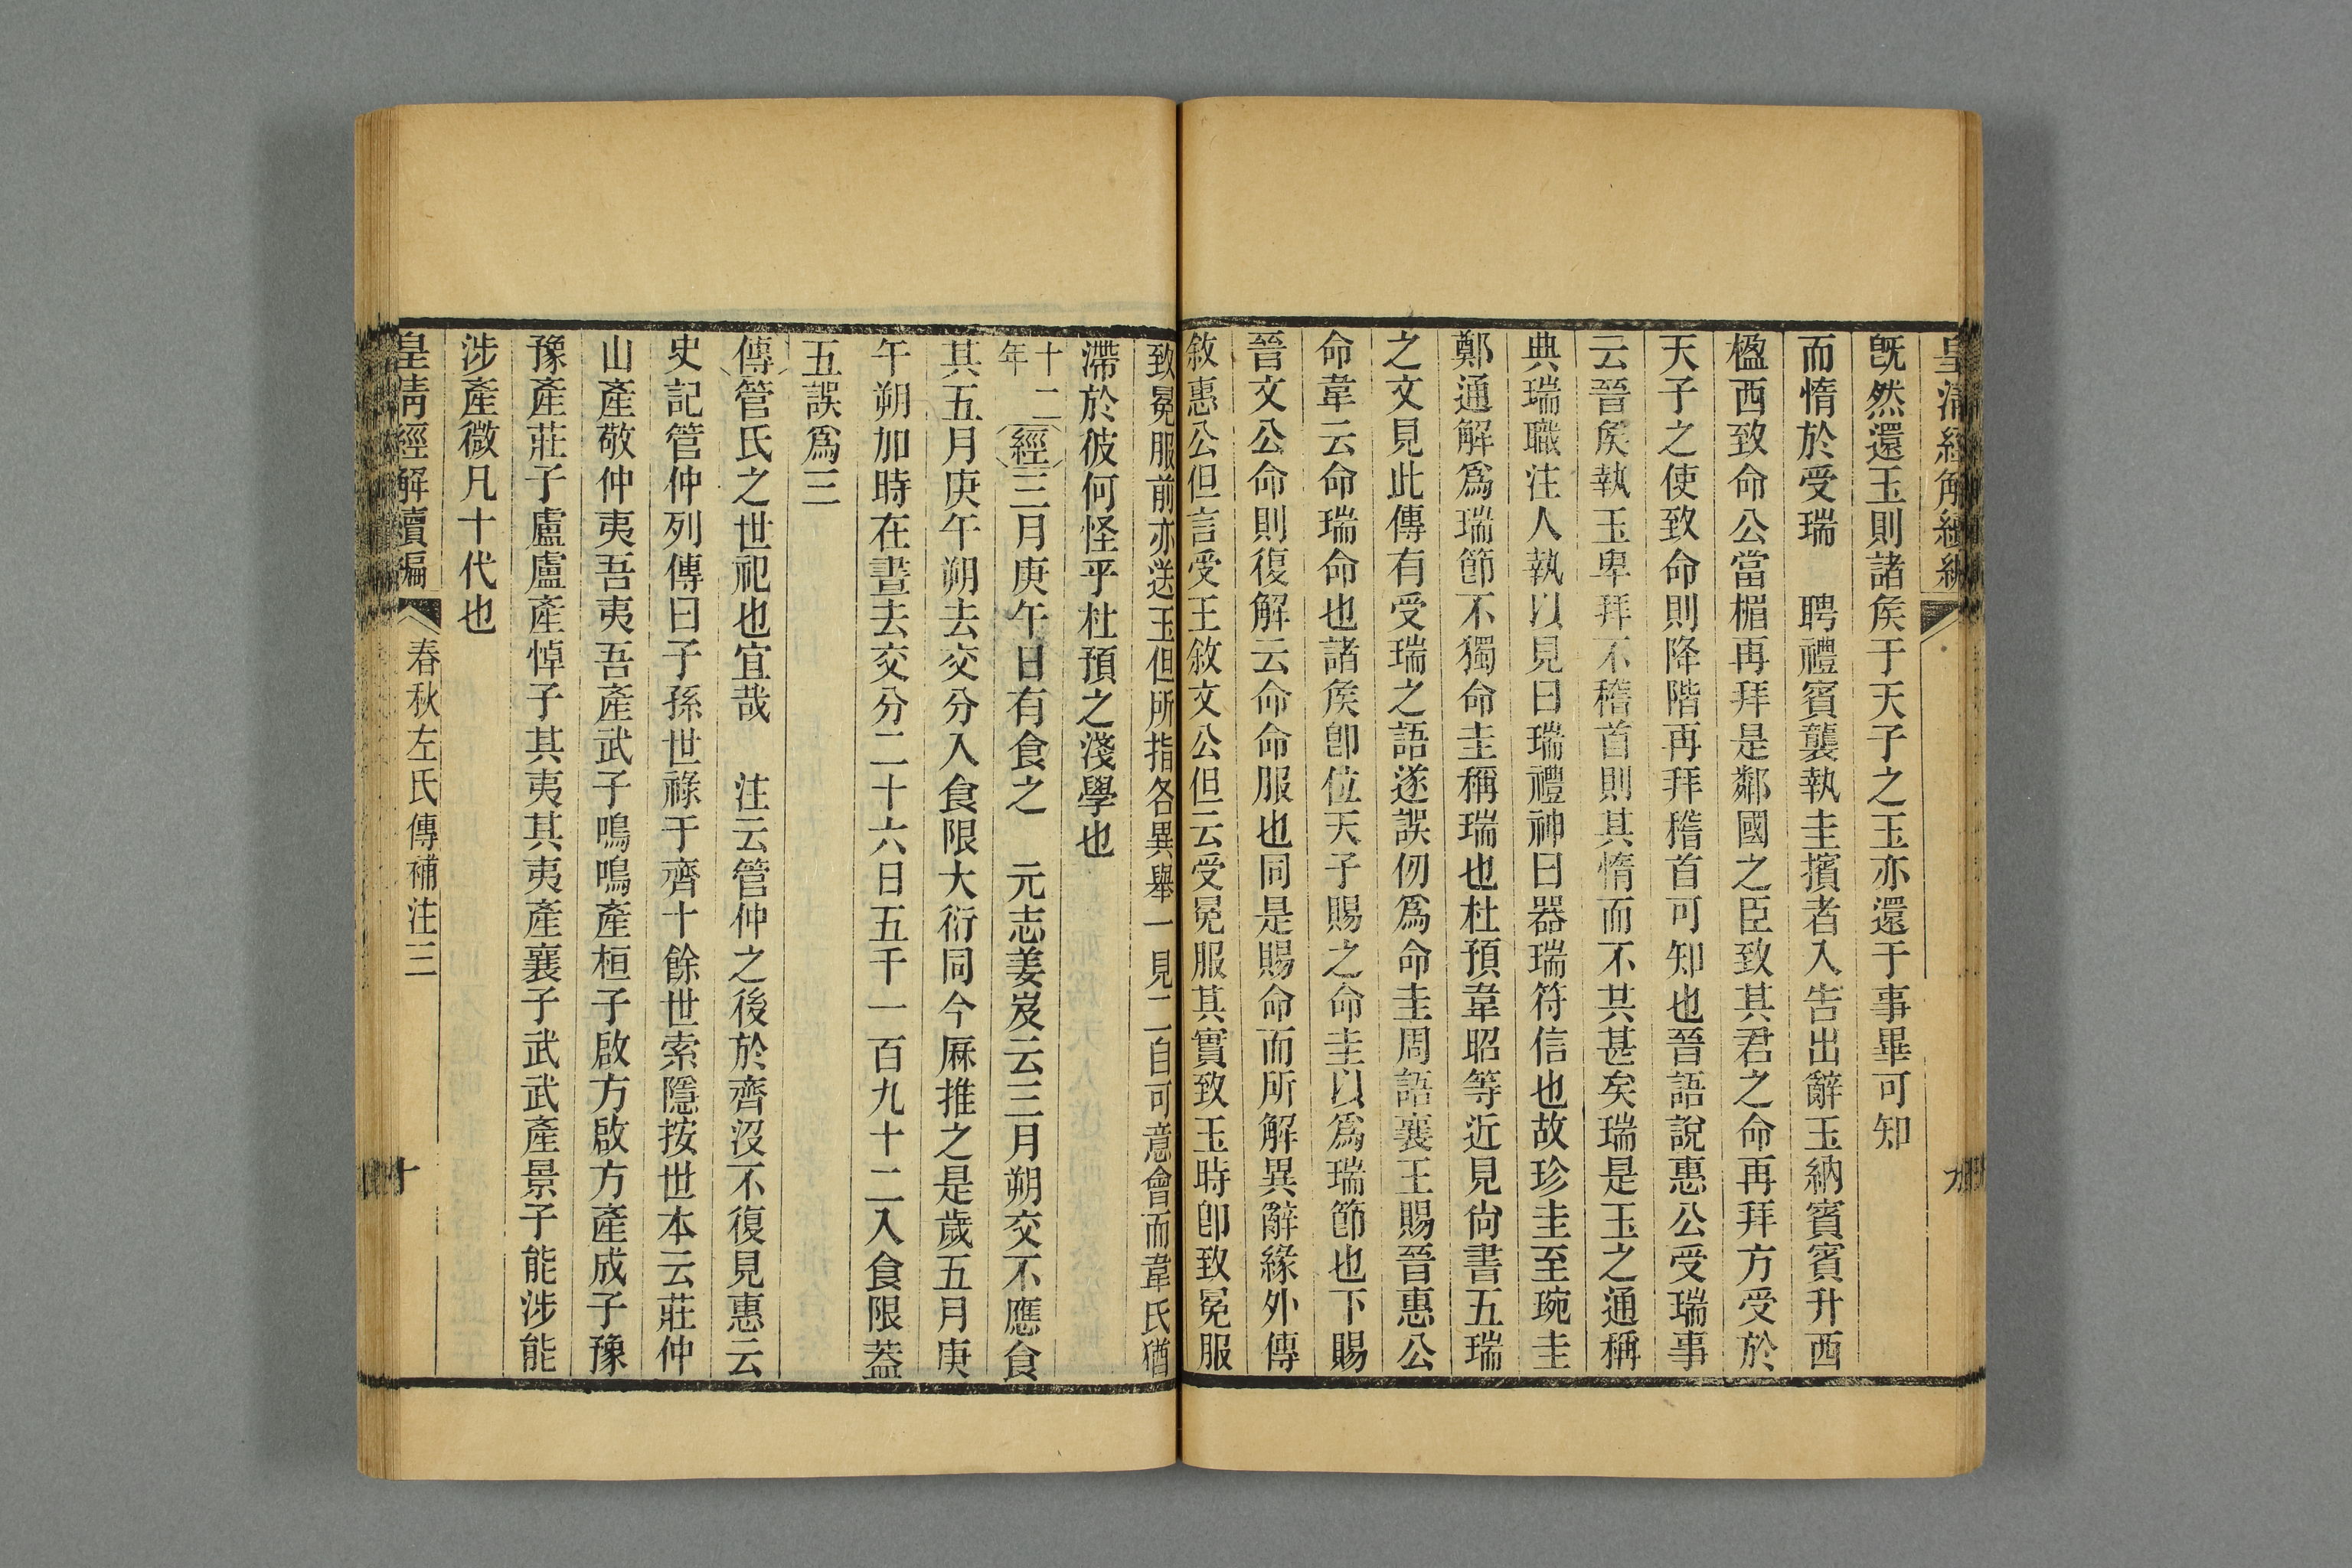 皇清經解續編
九
旣然還玉則諸矦于天子之玉亦還于事畢可知
而惰於受瑞　聘禮賓襲執圭擯者入告出辭玉納賓賓升西
楹西致命公當楣再拜是鄰國之臣致其君之命再拜方受於
天子之使致命則降階再拜稽首可知也晉語說惠公受瑞事
云晉矦執玉卑拜不稽首則其惰而不共甚矣瑞是玉之通稱
典瑞職注人執以見曰瑞禮神曰器瑞符信也故珍圭至琬圭
鄭通解爲瑞節不獨命圭稱瑞也杜預韋昭等近見尙書五瑞
之文見此傳有受瑞之語遂誤仞爲命圭周語襄王賜晉惠公
命韋云命瑞命也諸矦卽位天子賜之命圭以爲瑞節也下賜
晉文公命則復解云命命服也同是賜命而所解異辭緣外傳
敘惠公但言受王敘文公但云受冕服其實致玉時卽致冕服
致冕服前亦送玉但所指各異舉一見二自可意會而韋氏猶
滯於彼何怪乎杜預之淺學也
十二年經三月庚午日有食之　元志姜岌云三月朔交不應食
其五月庚午朔去交分入食限大衍同今厤推之是歲五月庚
午朔加時在晝去交分二十六日五千一百九十二入食限蓋
五誤爲三
傳管氏之世祀也宜哉　注云管仲之後於齊沒不復見惠云
史記管仲列傳曰子孫世祿于齊十餘世索隱按世本云莊仲
山產敬仲夷吾夷吾產武子鳴鳴產桓子啟方啟方產成子豫
豫產莊子盧盧產悼子其夷其夷產襄子武武產景子能涉能
涉產微凡十代也
皇清經解續編
春秋左氏傳補注三
十